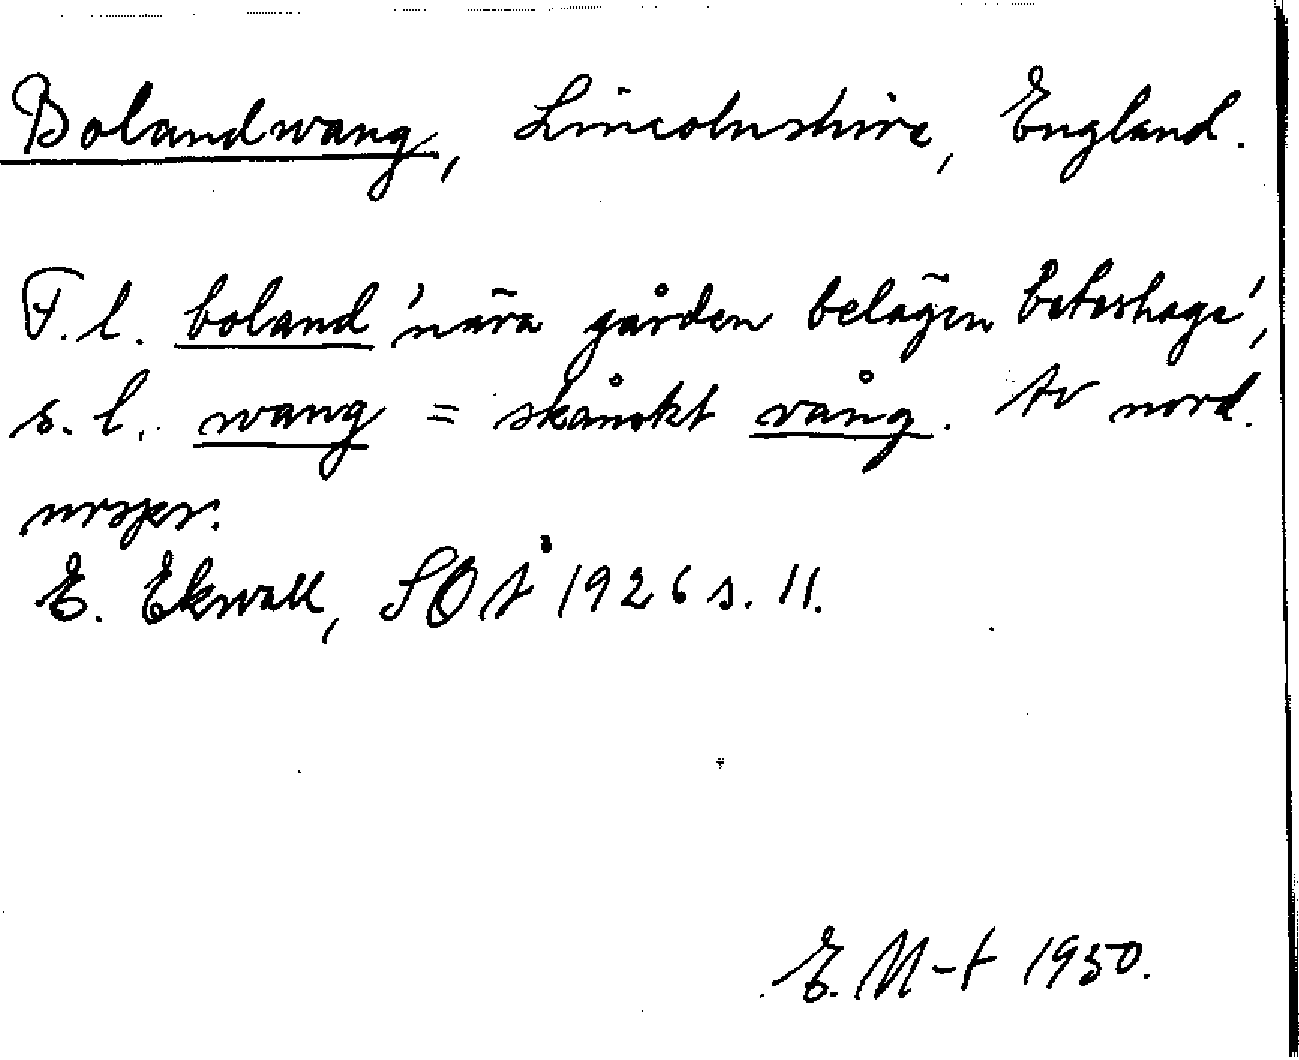 Bolandwang, Lincolnshire, England.
F.l. boland 'nära gården belägen beteshage',
s.l. wang = skånskt vång. Av nord.
urspr.
E. Ekwall, SOÅ 1926 s. 11.
E. M-t 1950.